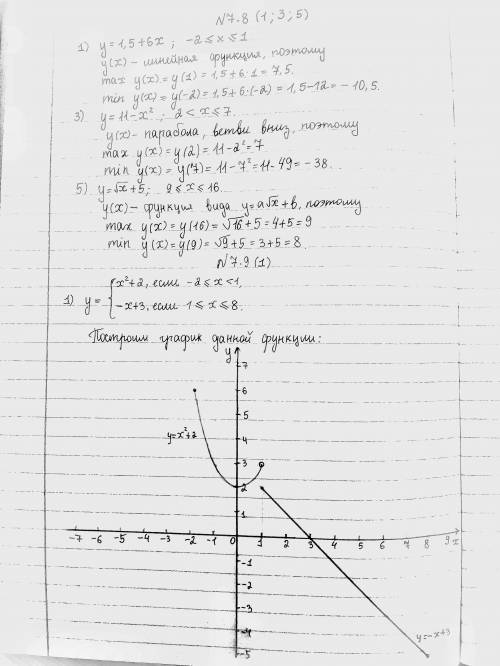 N7.8 (1; 3; 5)
1) y = 1,5 + 6x ; -2 ⩽ x ⩽ 1
y(x) - линейная функция, поэтому
max y(x) = y(1) = 1,5 + 6·1 = 7,5.
min y(x) = y(-2) = 1,5 + 6·(-2) = 1,5 - 12 = - 10,5.
3) y = 11 - x² ; 2 < x ⩽ 7.
y(x) - парабола, ветви вниз, поэтому
max y(x) = y(2) = 11 - 2² = 7
min y(x) = y(7) = 11 - 7² = 11 - 49 = - 38.
5) y = √x + 5; 9 ⩽ x ⩽ 16.
y(x) - функция вида y = a√x + b, поэтому
max y(x) = y(16) = √16 + 5 = 4 + 5 = 9
min y(x) = y(9) = √9 + 5 = 3 + 5 = 8
N7.9 (1)
1) y = { x² + 2, если -2 ⩽ x < 1,
-x + 3, если 1 ⩽ x ⩽ 8.
Построим график данной функции:
y
7
6
5
y = x² + 2
4
3
2
1
-7 -6 -5 -4 -3 -2 -1 0 1 2 3 4 5 6 7 8 9 x
-1
-2
-3
-4
y = -x + 3
-5